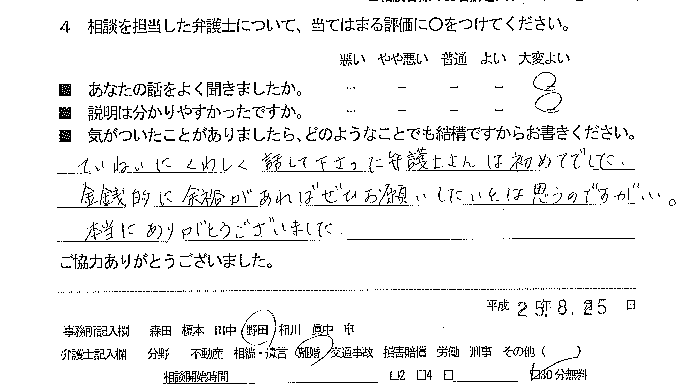 4 相談を担当した弁護士について、当てはまる評価に○をつけてください。
悪い やや悪い 普通 よい 大変よい
■ あなたの話をよく聞きましたか。 - - - -
■ 説明は分かりやすかったですか。 - - - -
■ 気がついたことがありましたら、どのようなことでも結構ですからお書きください。
ていねいにくわしく話して下さった弁護士さんは初めてでした。
金銭的に余裕があればぜひお願いしたいとは思うのですが。
本当にありがとうございました
ご協力ありがとうございました。
平成 25年8.25 日
事務所記入欄 森田 榎本 田中 野田 相川
弁護士記入欄 分野 不動産 相続・遺言 離婚 交通事故 損害賠償 労働 刑事 その他( )
相談開始時間 □2 □4 □ □30分無料